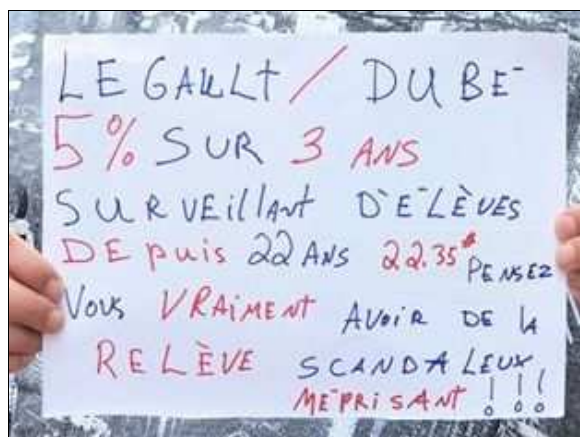 LEGAULT / DUBÉ
5% SUR 3 ANS
SURVEillANT D'ÉLÈVES
DEPuis 22 ANS 22.35$ PENSEZ
VOUS VRAiMENT AVOiR DE lA
RELÈVE SCANDALEUX
MÉPRiSANT !!!